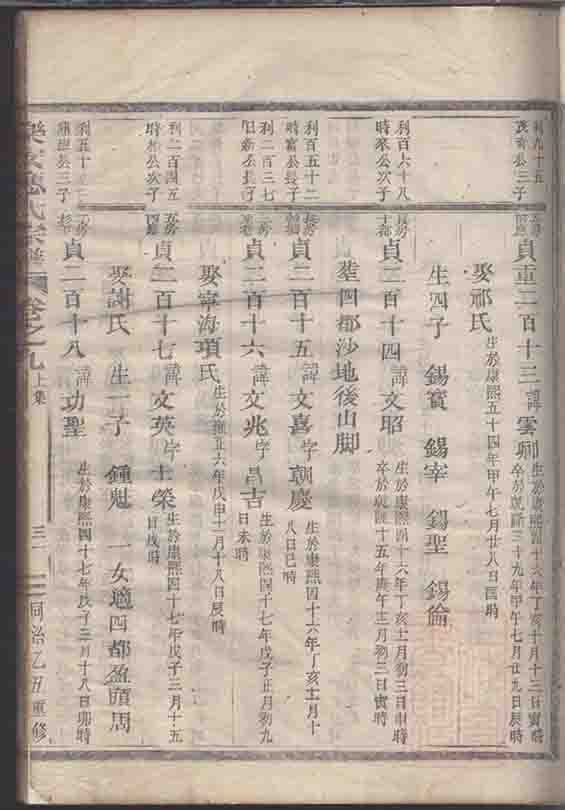 利九十五
茂公三子
貞二百十三 諱雲卿
生於康熙四十六年丁亥十月十三日寅時
卒於乾隆三十九年甲午七月廿九日辰時
娶祁氏 生於康熙五十四年甲午七月廿八日酉時
生四子 錫寶 錫宰 錫聖 錫倫
利百六十八
時來公次子
貞二百十四 諱文昭
生於康熙四十六年丁亥十二月初三日時
卒於乾隆十五年庚午十二月初三日寅時
葬四都沙地後山脚
利百五十二
時富公長子
貞二百十五 諱文喜 字朝慶
生於康熙四十六年丁亥十二月十
八日巳時
利二百三七
公長子
貞二百十六 諱文兆 字昌吉
生於康熙四十七年戊子正月初九
日未時
娶寧海項氏 生於雍正六年戊申十一月十八日辰時
利二百四五
公次子
貞二百十七 諱文英 字士榮
生於康熙四十七年戊子三月十五
日戌時
娶謝氏 生一子 鍾魁 一女適四都盈頭周
利五十
公三子
貞二百十八 諱功聖 生於康熙四十七年戊子三月十八日卯時
氏宗譜 卷之九 上集 三一 同治乙丑重修